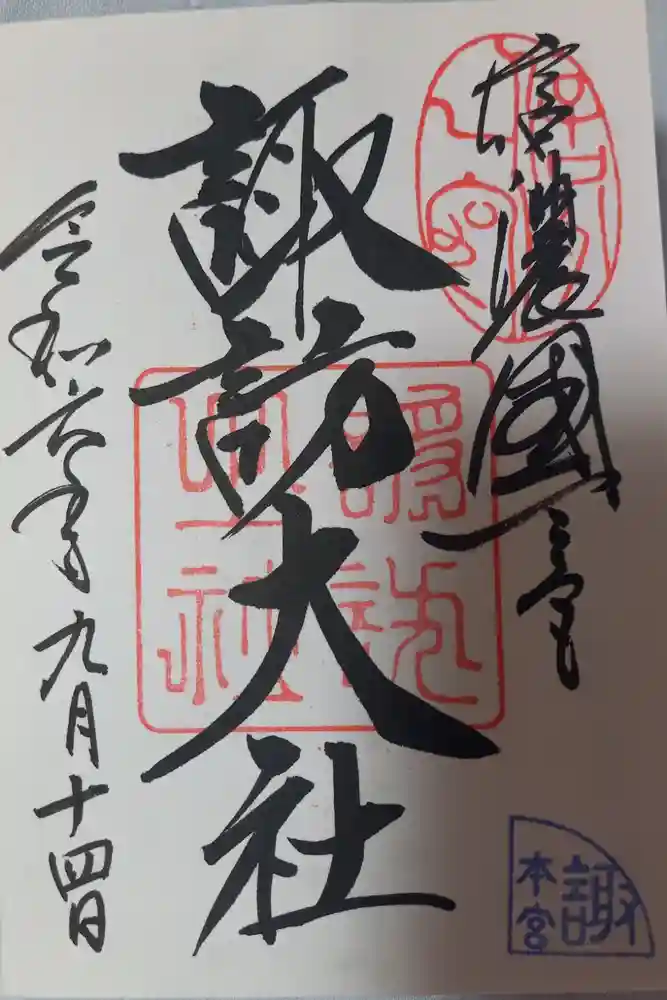 信濃國一之宮
諏訪大社
令和六年九月十四日
諏訪
上社
諏
本宮